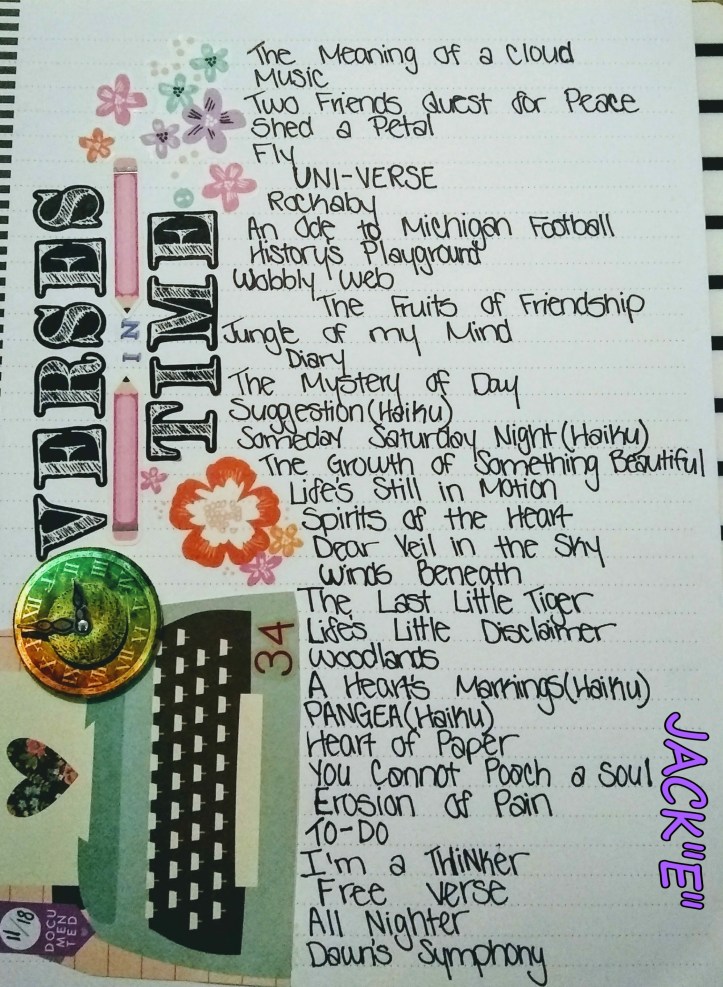 VERSES
IN
TIME
The Meaning of a Cloud
Music
Two Friends Quest for Peace
Shed a Petal
Fly
UNI-VERSE
Rockaby
An Ode to Michigan Football
History's Playground
Wobbly Web
The Fruits of Friendship
Jungle of my Mind
Diary
The Mystery of Day
Suggestion(Haiku)
Someday Saturday Night(Haiku)
The Growth of Something Beautiful
Life's Still in Motion
Spirits of the Heart
Dear Veil in the Sky
Winds Beneath
The Last Little Tiger
Life's Little Disclaimer
Woodlands
A Heart's Markings(Haiku)
PANGEA(Haiku)
Heart of Paper
You Cannot Poach a Soul
Erosion of Pain
TO-DO
I'm a THiNKer
Free Verse
All Nighter
Dawn's Symphony
34
JACK"E"
11/18
DOCU
MEN
TED